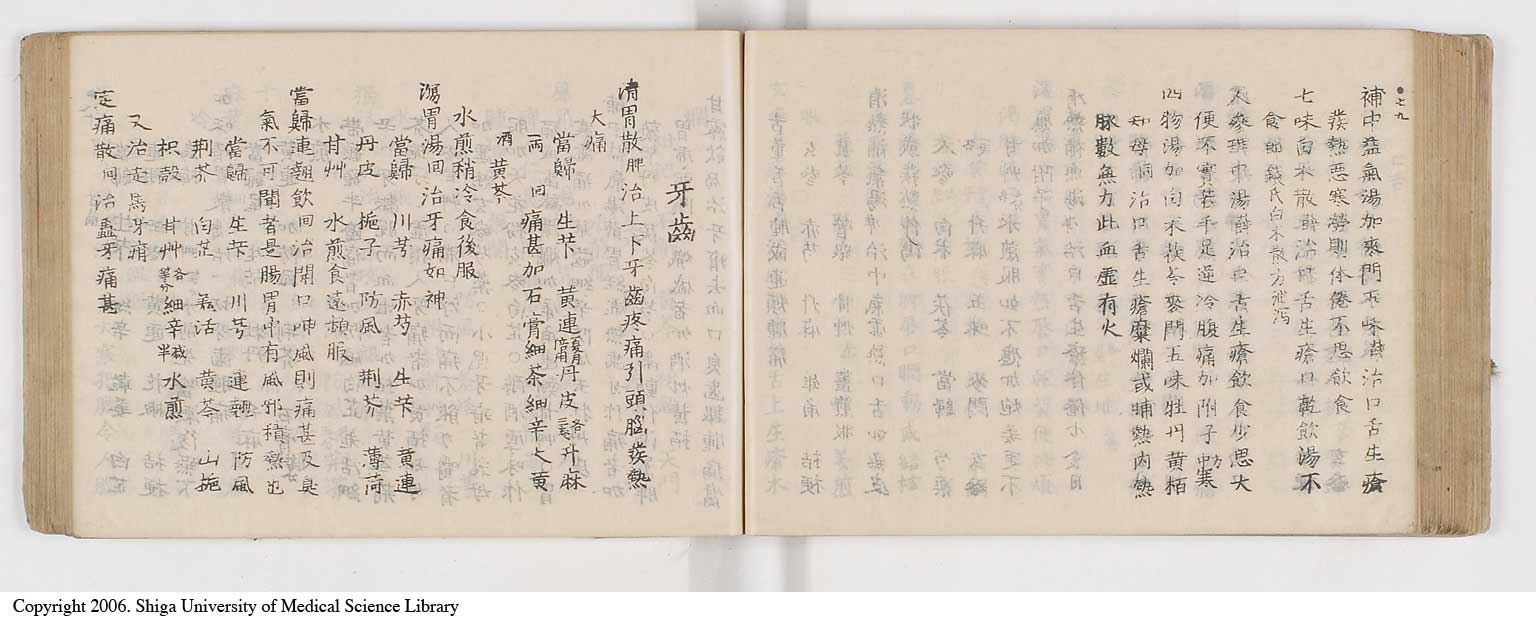 ●七九
補中益氣湯加麥門五味 治口舌生瘡
發熱惡寒勞則体倦不思飲食
七味白朮散 治口舌生瘡口乾飲湯不
食 錢氏白朮散方 泄瀉
人參理中湯 治口舌生瘡飲食少思大
便不實或手足逆冷腹痛加附子 中寒
四物湯加白朮茯苓麥門五味牡丹黃栢
知母 治口舌生瘡糜爛或晡熱內熱
脉數無力此血虛有火
牙齒
清胃散 脾 治上下牙齒疼痛引頭腦發熱
大痛
當歸 生芐 黃連 丹皮 升麻
一兩 同 痛甚加石膏細茶細辛大黃
酒黃芩
水煎稍冷食後服
瀉胃湯 回 治牙痛如神
當歸 川芎 赤芍 生芐 黃連
丹皮 梔子 防風 荆芥 薄荷
甘艸 水煎食遠頻服
當歸連翹飲 回 治開口呷風則痛甚及臭
氣不可聞者是腸胃中有風邪積熱也
當歸 生芐 川芎 連翹 防風
荆芥 白芷 羌活 黃芩 山梔
枳殼 甘艸 各等分 細辛 減半 水煎
又治走馬牙疳
定痛散 回 治蟲牙痛甚
Copyright 2006. Shiga University of Medical Science Library